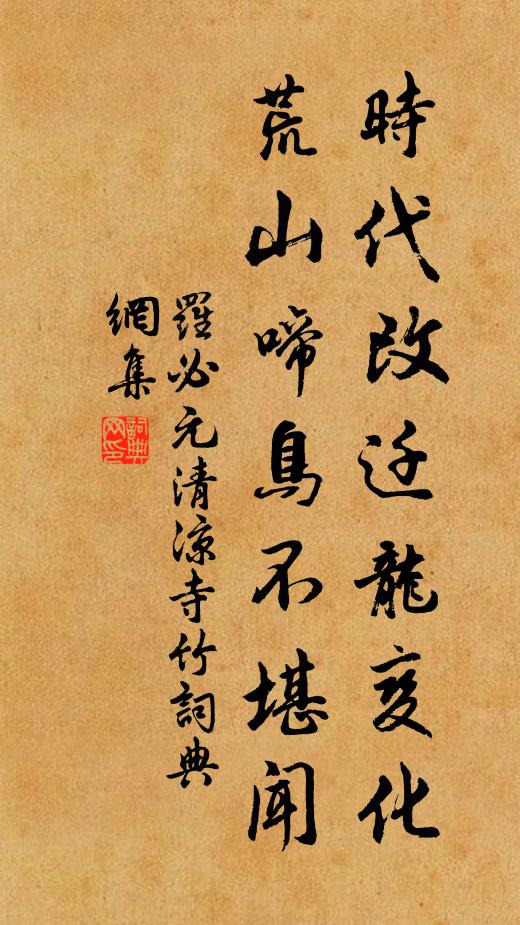 時代改迁龍变化
荒山啼鳥不堪聞
羅必元清涼寺竹詞典
網集
詞典网印